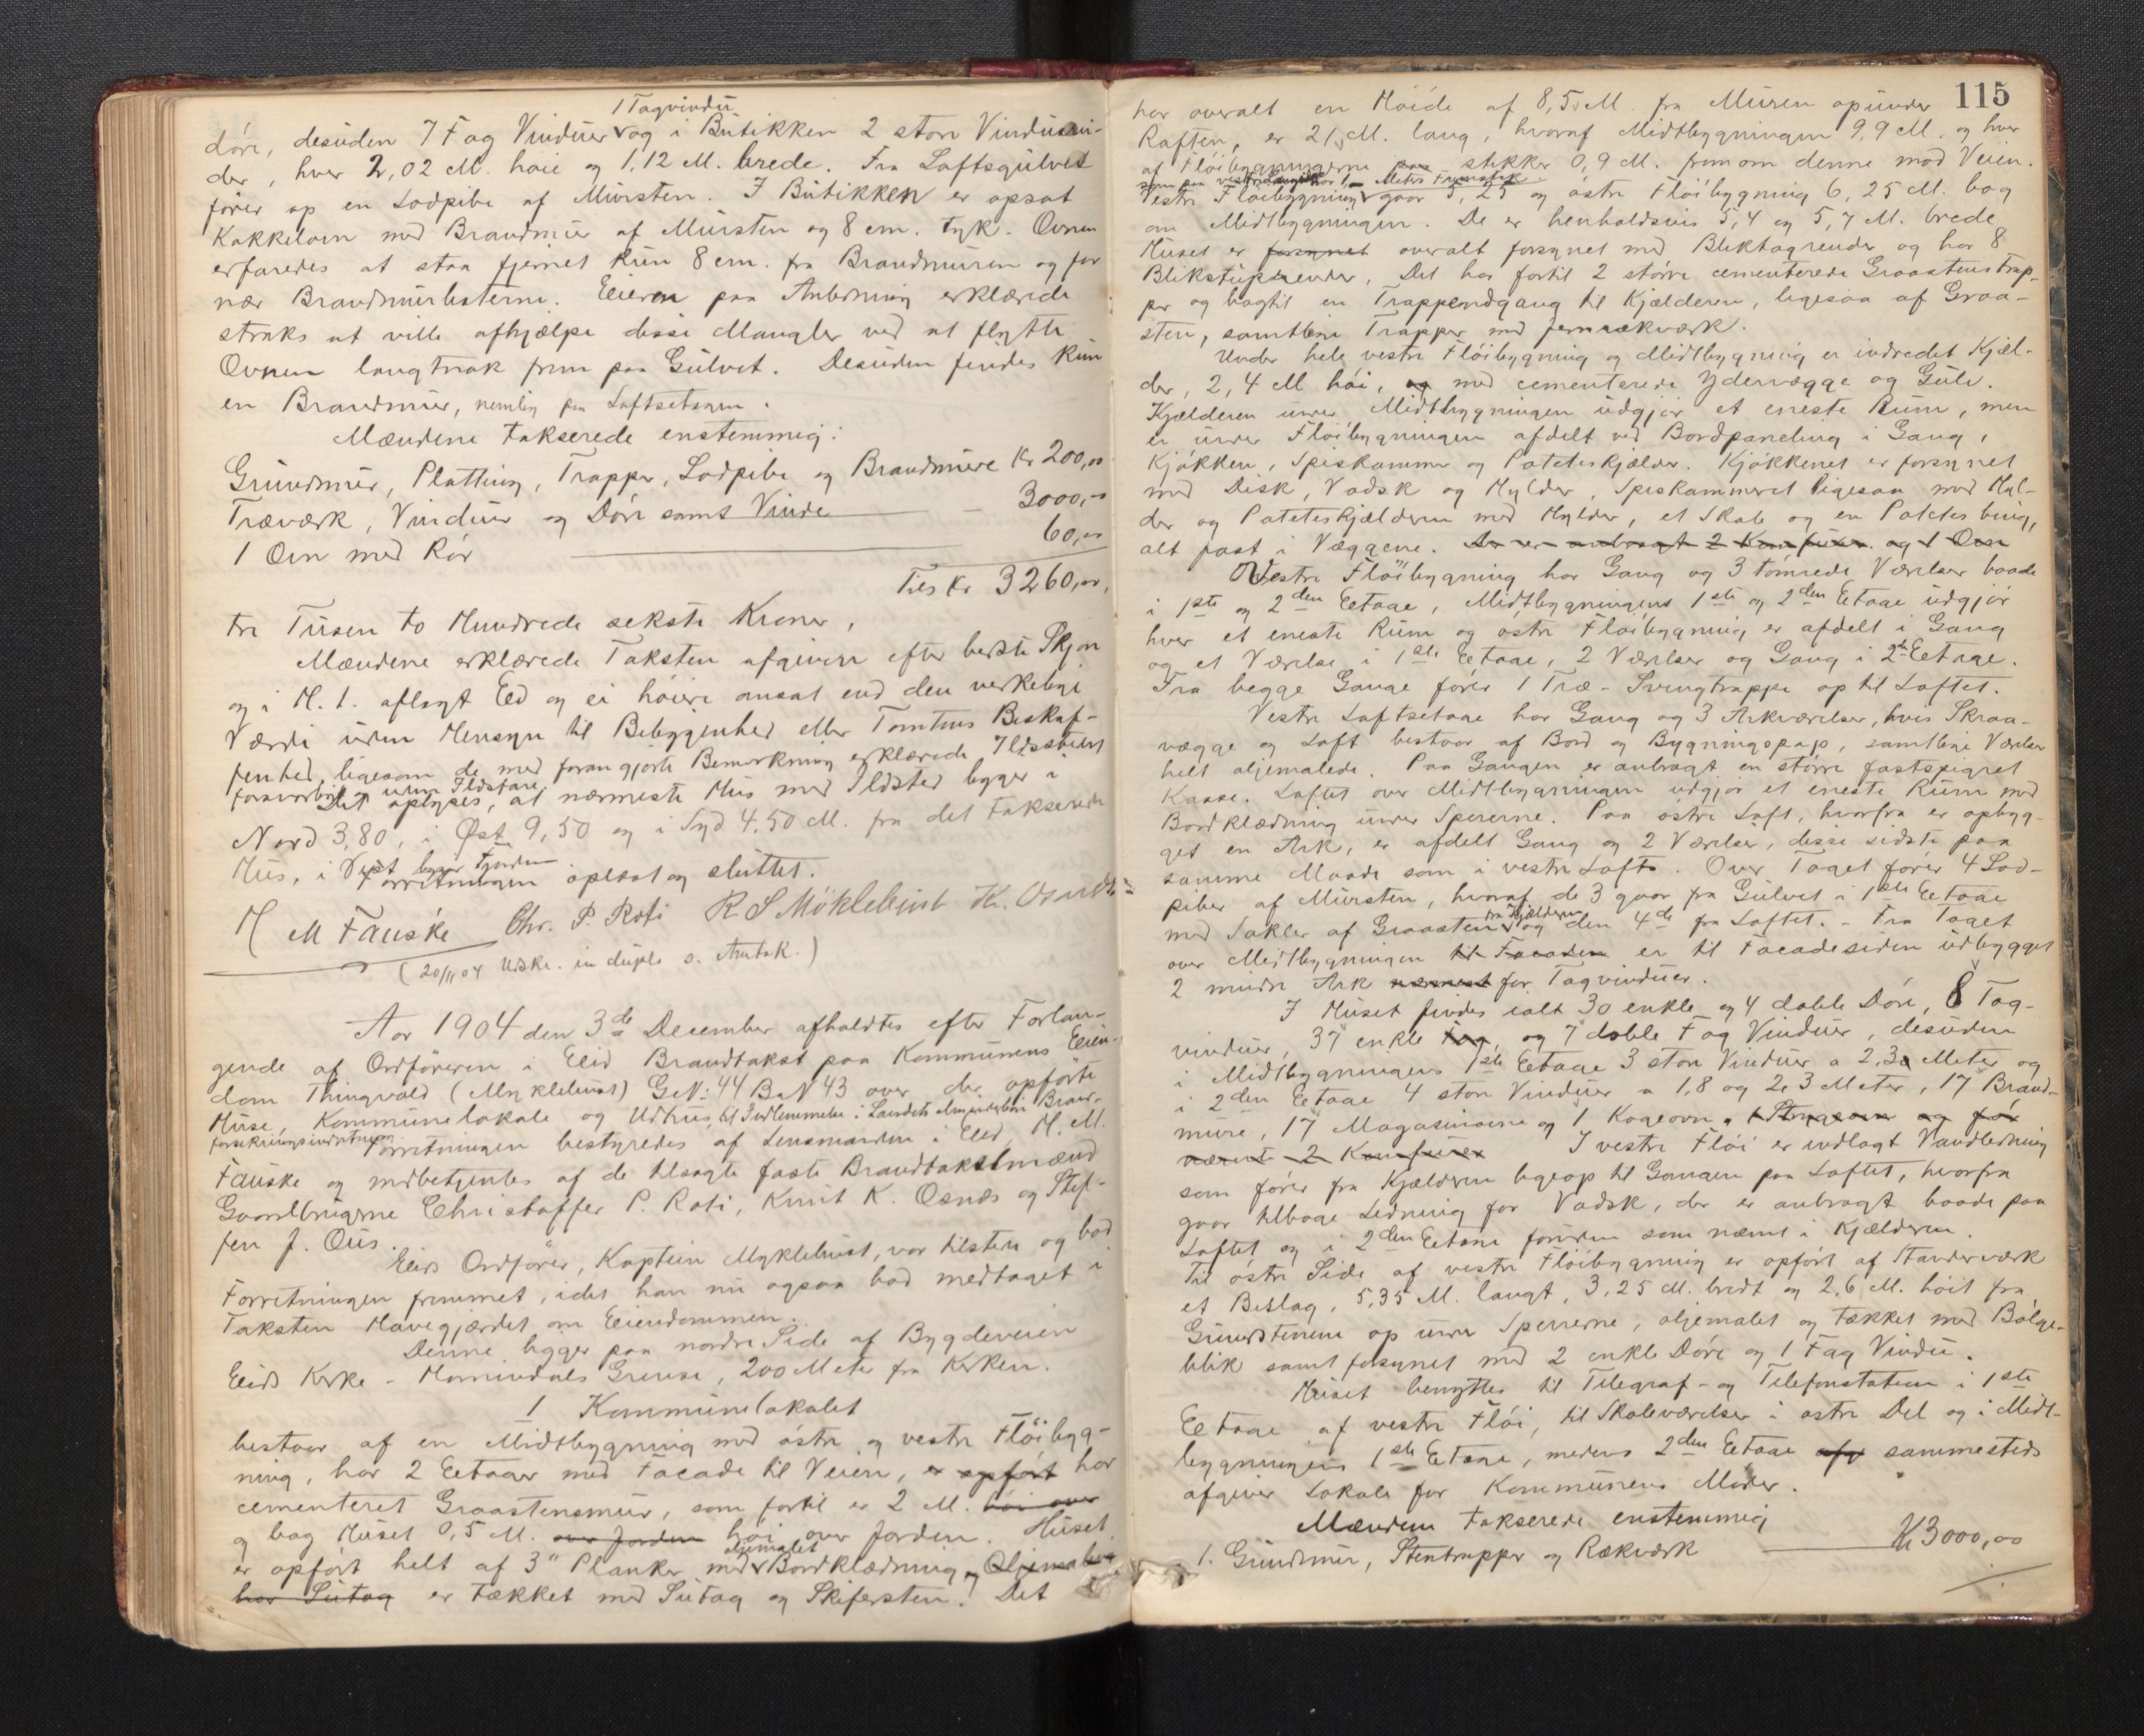 1 Tagvindu
döre, desuden 7 Fag Vinduer og i Butikken 2 store Vinduer
der, hver 2,02 M. høie og 1,12 M. brede. Fra Loftsgulvet
fører op en Lodpibe af Mursten. I Butikken er opsat
Kakkelovn med Brandmur af Mursten og 8 cm. tyk. Ovnen
erfaredes at staa fjernet kun 8 cm. fra Brandmuren og for
nær Brandmurlisterne. Eieren paa Anledning erklærede
straks at ville afhjælpe disse Mangler ved at flytte
Ovnen langt nok frem paa Gulvet. Desuden findes kun
en Brandmur, nemlig paa Loftsetagen.
Mændene takserede enstemmig:
Grundmur, Platting, Trapper, Lodpibe og Brandmure Kr 200,00
Træværk, Vinduer og Döre samt Vinde – 3000,00
1 Ovn med Rör 60,00
Tils kr 3260,00,
tre Tusen to Hundrede seksti Kroner,
Mændene erklærede Taksten afgiven efter bedste Skjøn
og i H. t. aflagt Eed og ei høiere ansat end den verkelige
Værdi uden Hensyn til Beliggenhed eller Tomtens Beskaf-
fenhed, ligesom de med foran gjorte Bemerkning erklærede Ildstedet
forsvarligt uden Ildsfare.
Det oplyses, at nærmeste Hus med Ildsted ligger i
Nord 3,80, i Øst 9,50 og i Syd 4,50 M. fra det takserede
Hus, i Vest ligger Fjorden.
Forretningen oplæst og sluttet.
H M Fauske Chr. P. Roti R S Möklebust K. Osnes
(20/11 04 Udskr. in duplo s. Amtsk.)
Aar 1904 den 3de December afholdtes efter Forlan-
gende af Ordföreren i Eid Brandtakst paa Kommunens Eien-
dom Thingvold (Myklebust) G.N. 44 B.N 43 over der opförte
Huse, Kommunelokale og Udhus, til Indlemmelse i Landets almindelige Brand-
forsikringsindretning.
Forretningen bestyredes af Lensmanden i Eid, H. M.
Fauske og medbetjentes af de tilsagte faste Brandtakstmænd
Gaardbrugerne Christoffer P. Roti, Knut K. Osnæs og Stef-
fen J. Ous.
Eids Ordfører, Kaptein Myklebust, var tilstede og bad
Forretningen fremmet, idet han nu ogsaa bad medtaget i
Taksten Havegjærdet om Eiendommen.
Denne ligger paa nordre Side af Bygdeveien
Eids Kirke – Hornindals Grense, 200 Meter fra Kirken.
1 Kommunelokalet
bestaar af en Midtbygning med østre og vestre Flöibyg-
ning, har 2 Eetager med Facade til Veien, er opført har
cementeret Graastensmur, som fortil er 2 M. høi over
og bag Huset 0,5 M. over Jorden høi over Jorden. Huset
er opfört helt af 3" Planker med oljemalet Bordklædning og Oljemaling
har Sutag er tækket med Sutag og Skifersten. Det
115
har overalt en Høide af 8,5 M. fra Muren opunder
Raften, er 21 M. lang, hvoraf Midtbygningen 9,9 M. og hver
af Flöibygningerne stikker 0,9 M. frem om denne mod Veien.
Vestre Flöibygning gaar 5,25 og østre Flöibygning 6,25 M. bag
om Midtbygningen. De er henholdsvis 5,4 og 5,7 M. brede
Huset er forsynet overalt forsynet med Bliktagrender og har 8
Blikstuprender, Det har fortil 2 större cementerede Graastenstrap-
per og bagtil en Trappendgang til Kjælderen, ligesaa af Graa-
sten, samtlige Trapper med Jernrækværk.
Under hele vestre Flöibygning og Midtbygning er indredet Kjæl-
der, 2,4 M høi, og med cementerede Ydervægge og Gulv.
Kjælderen under Midtbygningen udgjør et eneste Rum, men
er under Flöibygningen afdelt ved Bordpaneling i Gang,
Kjøkken, Spiskammer og Potetskjælder. Kjøkkenet er forsynet
med Disk, Vadsk og Hylder, Spiskammeret ligesaa med Hyl-
der og Potetskjælderen med Hylder, et Skab og en Potetesbing,
alt fast i Væggene. Der er anbragt 2 Komfurer og 1 Ovn
Vestre Flöibygning har Gang og 3 tømrede Værelser baade
i 1ste og 2den Eetage, Midtbygningens 1ste og 2den Eetage udgjør
hver et eneste Rum og østre Flöibygning er afdelt i Gang
og et Værelse i 1ste Eetage, 2 Værelser og Gang i 2den Eetage.
Fra begge Gange fører 1 Træ-Svingtrappe op til Loftet.
Vestre Loftsetage har Gang og 3 Arkværelser, hvis Skraa-
vægge og Loft bestaar af Bord og Bygningspap, samtlige Værelser
helt oljemalede. Paa Gangen er anbragt en större fastspigret
Kasse. Loftet over Midtbygningen udgjør et eneste Rum med
Bordklædning under Sperrerne. Paa østre Loft, hvorfra er opbyg-
get en Ark, er afdelt Gang og 2 Værelser, disse sidste paa
samme Maade som i vestre Loft. Over Taget fører 4 Lod-
piber af Mursten, hvoraf de 3 gaar fra Gulvet i 1ste Eetage
med Sokler af Graasten fra Kjælderen og den 4de fra Loftet. – Fra Taget
over Midtbygningen til Facaden er til Facadesiden udbygget
2 mindre Ark nærmest for Tagvinduer.
I Huset findes ialt 30 enkle og 4 doble Döre, 8 Tag-
vinduer, 37 enkle Fag, og 7 doble Fag Vinduer, desuden
i Midtbygningens 1ste Eetage 3 store Vinduer a 2,30 Meter og
i 2den Eetage 4 store Vinduer a 1,8 og 2,3 Meter, 17 Brand-
mure, 17 Magasinovne og 1 Kogeovn, 1 Strygeovn og før
nævnte 2 Komfurer I vestre Flöi er indlagt Vandledning
som fører fra Kjælderen ligeop til Gangen paa Loftet, hvorfra
gaar tilbage Ledning for Vadsk, der er anbragt baade paa
Loftet og i 2den Eetage foruden som nævnt i Kjælderen.
Til østre Side af vestre Flöibygning er opfört af Standerværk
et Beslag, 5,35 M. langt, 3,25 M. bredt og 2,6 M. høit fra
Grundstenene op under Sperrerne, oljemalet og tækket med Bølge-
blik samt forsynet med 2 enkle Döre og 1 Fag Vindu.
Huset benyttes til Telegraf- og Telefonstation i 1ste
Eetage af vestre Flöi, til Skoleværelser i østre Del og i Midt-
bygningens 1ste Etage, medens 2den Eetage afg sammesteds
afgiver Lokale for Kommunens Møder.
Mændene takserede enstemmig
1. Grundmur, Stentrapper og Rækværk Kr 3000,00